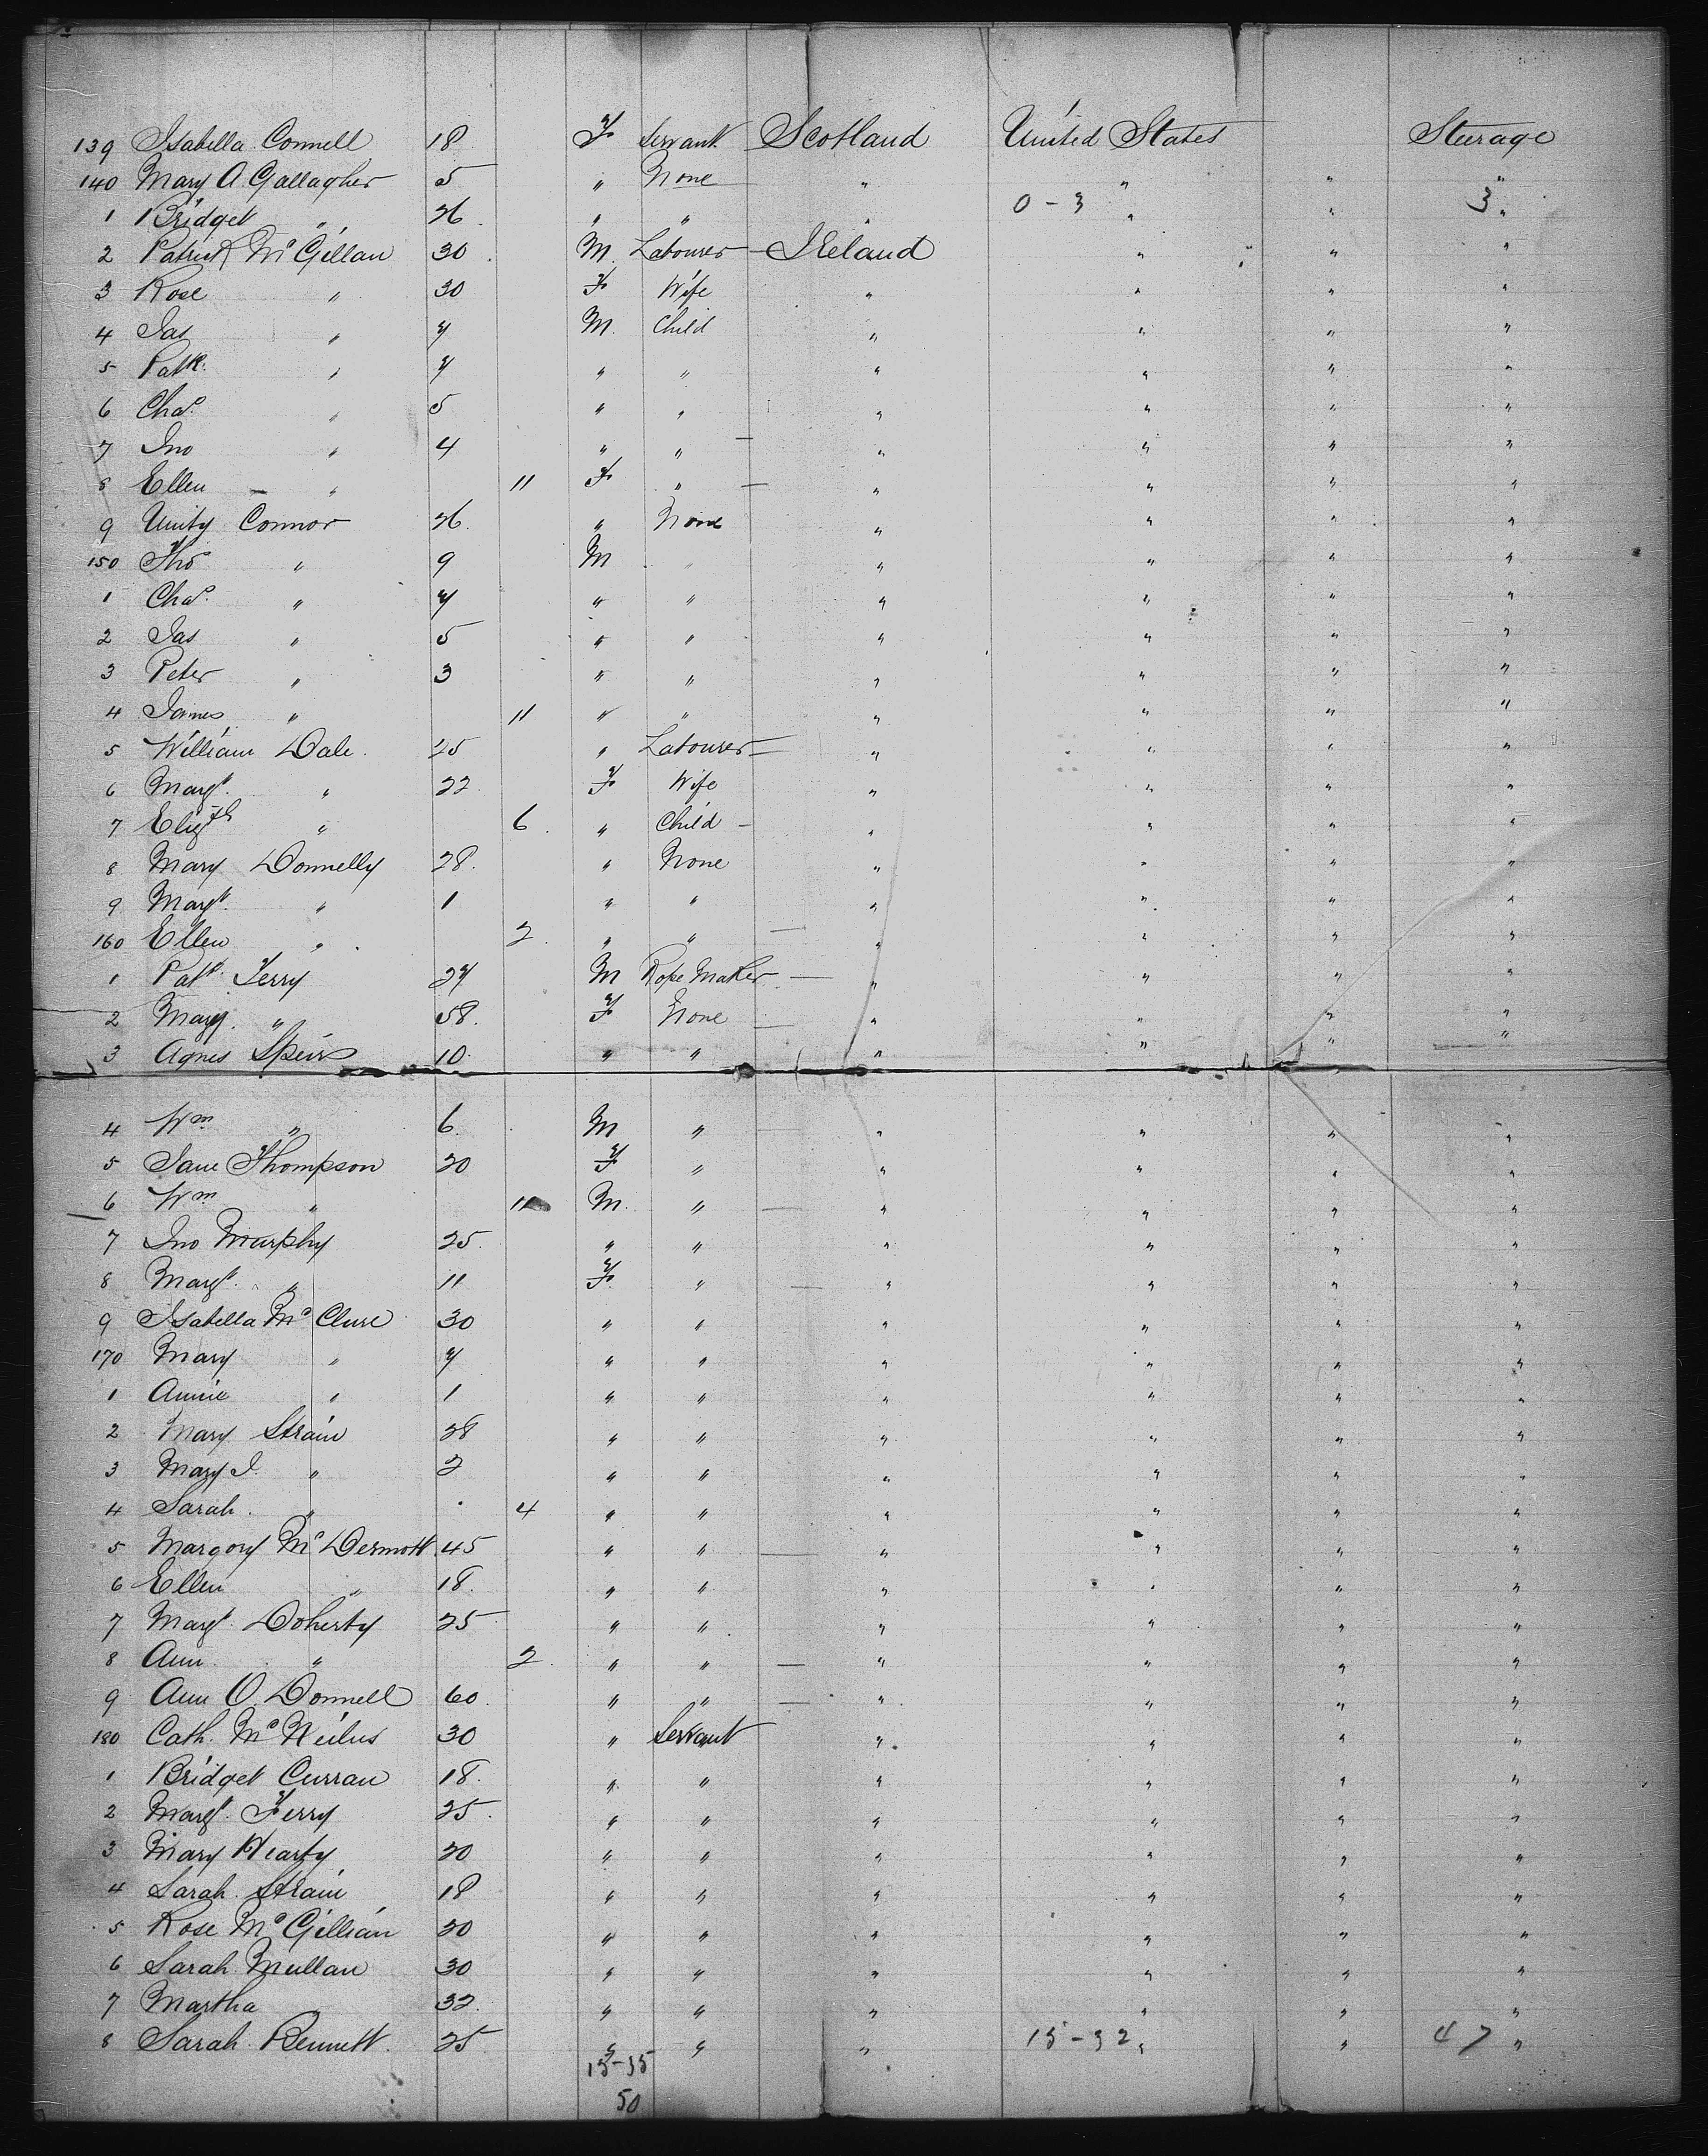 139 Isabella Connell 18 F Servant Scotland United States Steerage
140 Mary A Gallagher 5 " None " " " "
1 Bridget " 26 " " " 0-3 " " 3 "
2 Patrick McGillan 30 M Labourer Ireland " " "
3 Rose " 30 F Wife " " " "
4 Jas " 7 M Child " " " "
5 Patk. " 7 " " " " " "
6 Chas. " 5 " " " " " "
7 Jno " 4 " " " " " "
8 Ellen " 11 F " " " " "
9 Unity Connor 26 " None " " " "
150 Thos " 9 M " " " " "
1 Chas. " 7 " " " " " "
2 Jas " 5 " " " " " "
3 Peter " 3 " " " " " "
4 James " 11 " " " " " "
5 William Dale 25 " Labourer " " " "
6 Margt. " 22 F Wife " " " "
7 Elizth " 6 " Child " " " "
8 Mary Donnelly 28 " None " " " "
9 Margt. " 1 " " " " " "
160 Ellen " 2 " " " " " "
1 Patk Ferry 27 M Rope Maker " " " "
2 Mary " 58 F None " " " "
3 Agnes Speirs 10 " " " " " "
4 Wm " 6 M " " " " "
5 Jane Thompson 20 F " " " " "
6 Wm " 11 M " " " " "
7 Jno Murphy 25 " " " " " "
8 Margt. " 11 F " " " " "
9 Isabella McClure 30 " " " " " "
170 Mary " 7 " " " " " "
1 Annie " 1 " " " " " "
2 Mary Strain 28 " " " " " "
3 Mary J. " 2 " " " " " "
4 Sarah " 4 " " " " " "
5 Margory McDermott 45 " " " " " "
6 Ellen " 18 " " " " " "
7 Margt. Doherty 25 " " " " " "
8 Ann " 2 " " " " " "
9 Ann O Donnell 60 " " " " " "
180 Cath. Mc 30 " Servant " " " "
1 Bridget Curran 18 " " " " " "
2 Margt. Ferry 25 " " " " " "
3 Mary Hearty 20 " " " " " "
4 Sarah Strain 18 " " " " " "
5 Rose McGillian 20 " " " " " "
6 Sarah Mullan 30 " " " " " "
7 Martha " 32 " " " " " "
8 Sarah Bennett 25 " " " 15-32 " " 47 "
15-35
50